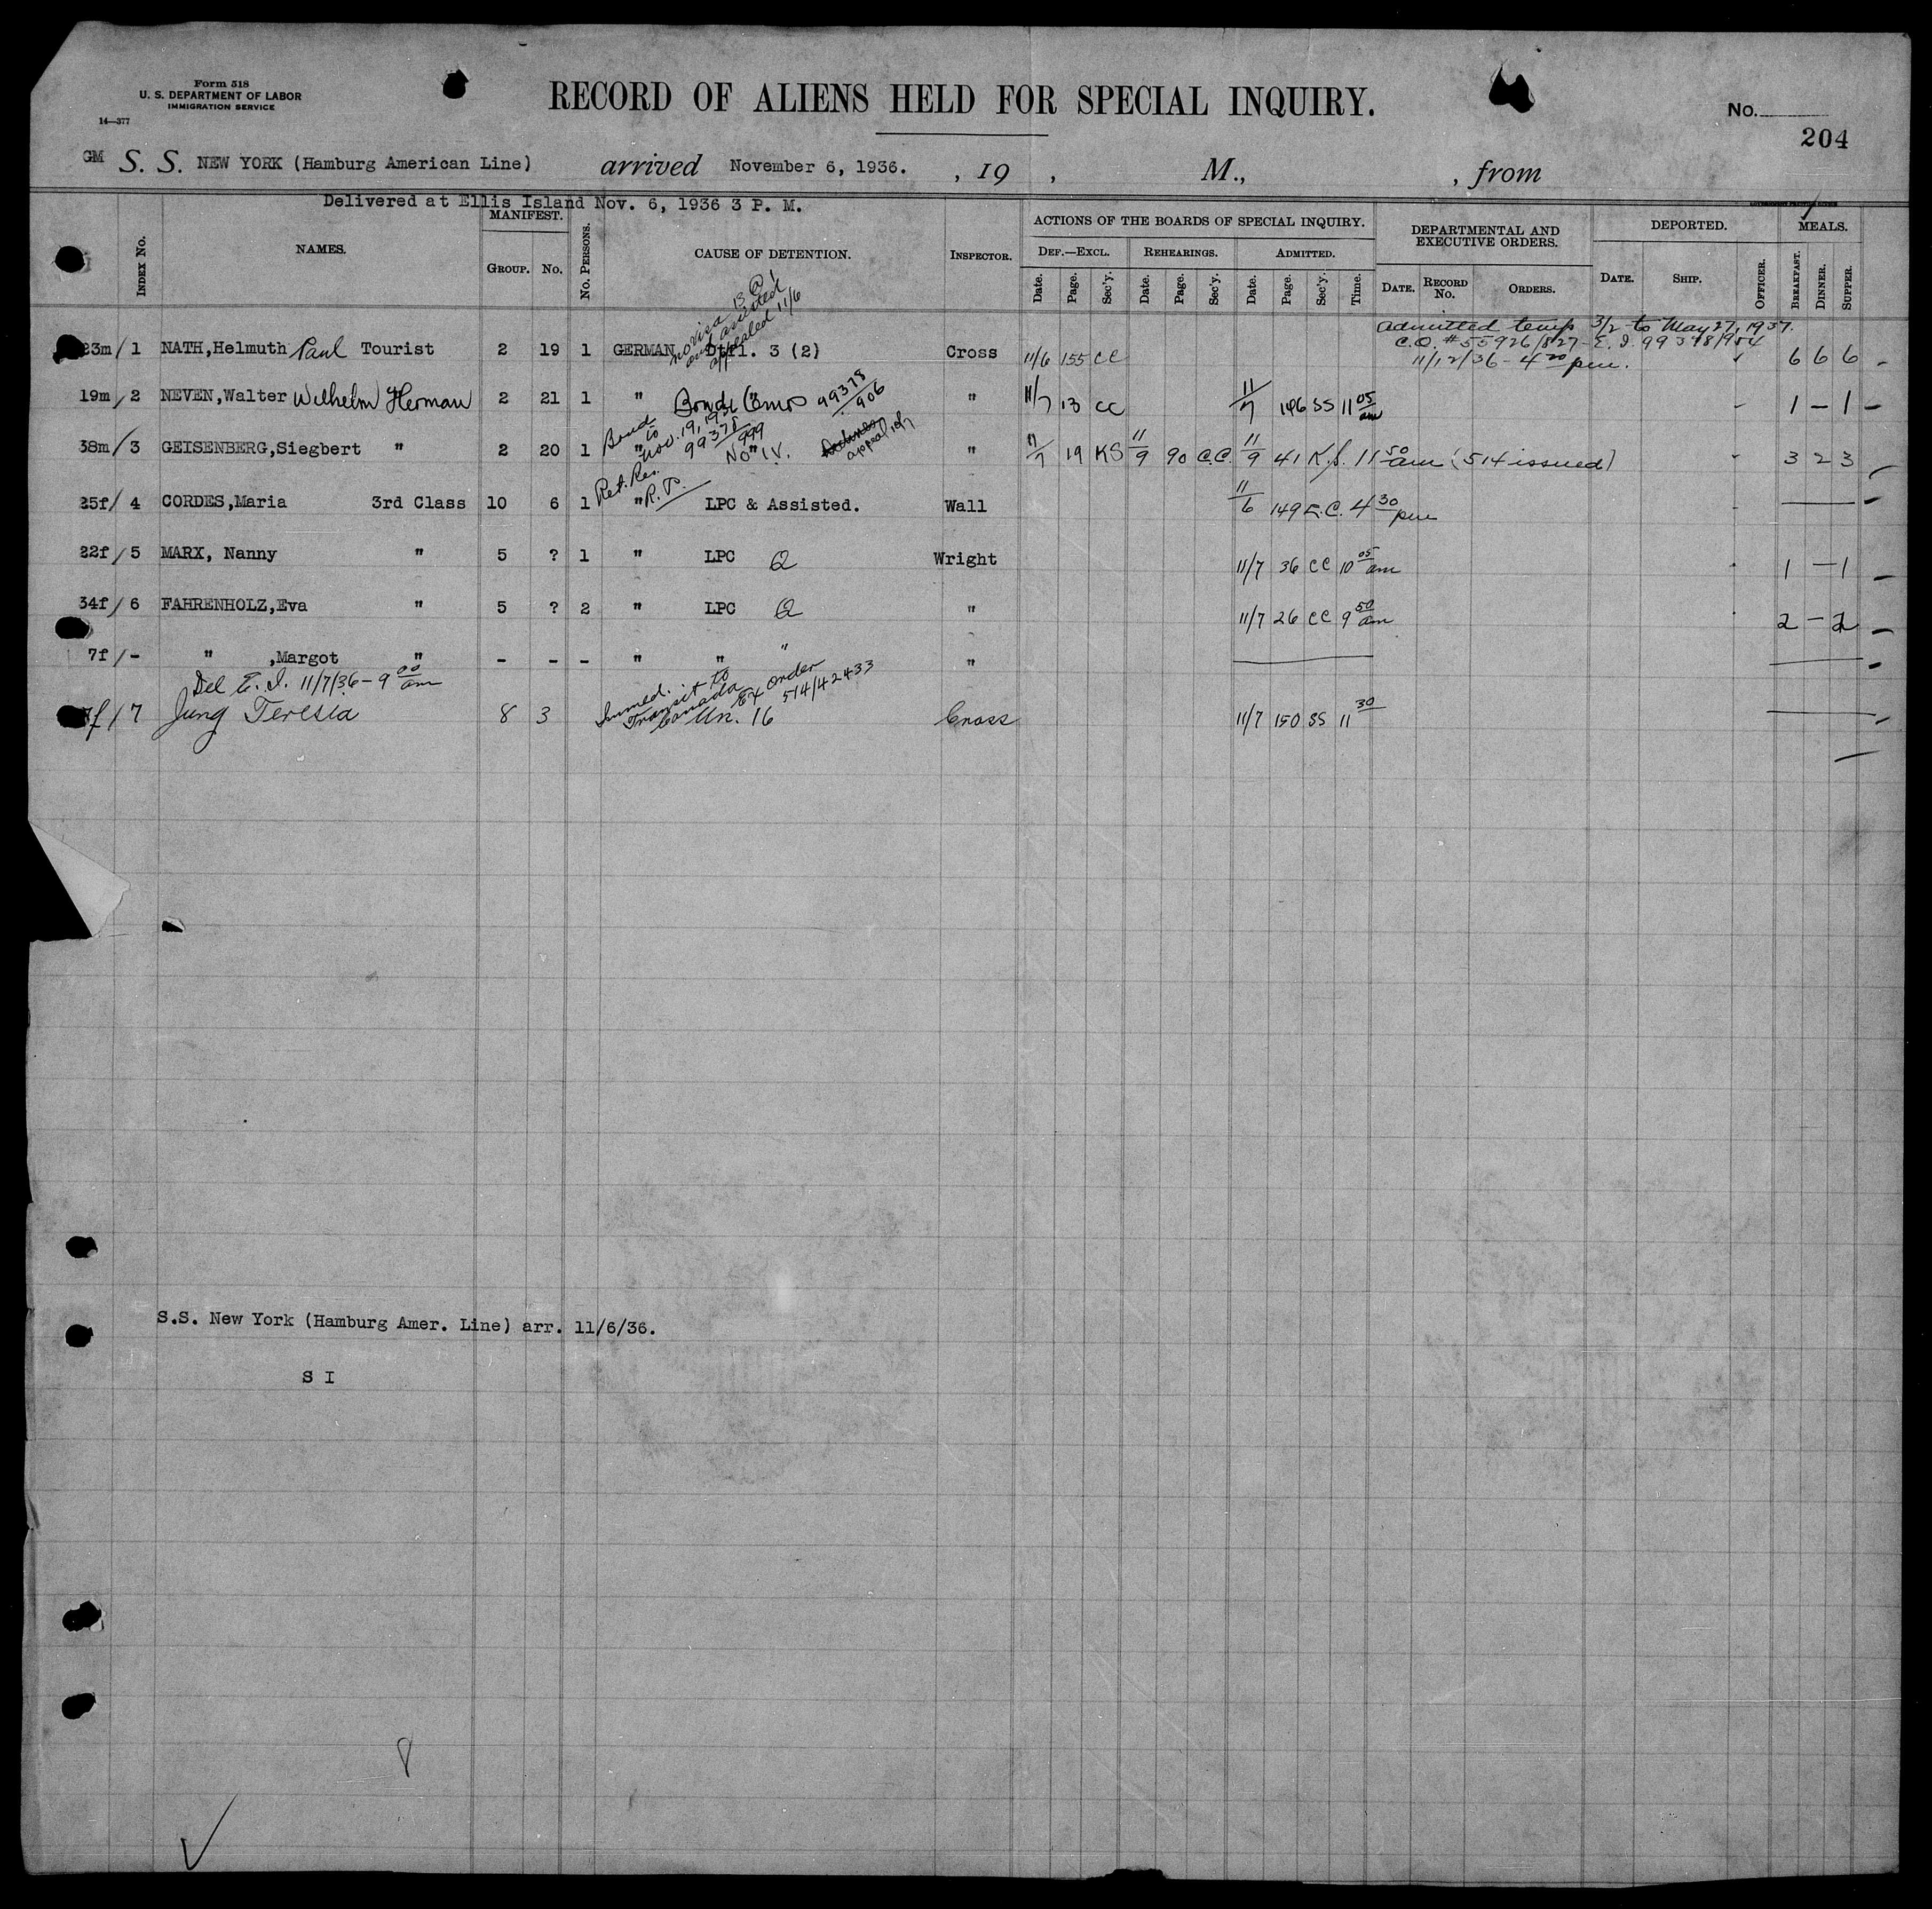 Form 518
U. S. DEPARTMENT OF LABOR
IMMIGRATION SERVICE
14—377
RECORD OF ALIENS HELD FOR SPECIAL INQUIRY.
No.
204
GM S. S. NEW YORK (Hamburg American Line) arrived November 6, 1936. , 19 , M., , from
Delivered at Ellis Island Nov. 6, 1936 3 P. M.
INDEX No. NAMES. MANIFEST. GROUP. No. No. PERSONS. CAUSE OF DETENTION. INSPECTOR. ACTIONS OF THE BOARDS OF SPECIAL INQUIRY. DEPARTMENTAL AND EXECUTIVE ORDERS. DEPORTED. MEALS.
DEF.—EXCL. REHEARINGS. ADMITTED.
Date. Page. Sec'y. Date. Page. Sec'y. Date. Page. Sec'y. Time. DATE. RECORD No. ORDERS. DATE. SHIP. OFFICER. BREAKFAST. DINNER. SUPPER.
no visa 13
and assisted
appealed 11/6
admitted temp 3/2 to May 27, 1937.
23m/ 1 NATH,Helmuth Paul Tourist 2 19 1 GERMAN 3 (2) Cross 11/6 155 CC C.O. #55926/827- E. I. 99378/954 6 6 6 -
11/12/36 - 4 20 pm.
19m/ 2 NEVEN,Walter Wilhelm Herman 2 21 1 " Bond 99378/906 " 11/7 13 CC 11/7 146 SS 11 05 am - 1 - 1 -
Bond to
Nov. 19, 1936
99378/999
38m/ 3 GEISENBERG,Siegbert " 2 20 1 " No I.V. appeal " 11/7 19 KS 11/9 90 C.C. 11/9 41 K.S. 11 50 am (514 issued) - 3 2 3 -
Ret. Res.
R.P.
25f/ 4 CORDES,Maria 3rd Class 10 6 1 " LPC & Assisted. Wall 11/6 149 E.C. 4 30 pm -
22f/ 5 MARX, Nanny " 5 ? 1 " LPC Q Wright 11/7 36 CC 10 05 am 1 - 1 -
34f/ 6 FAHRENHOLZ,Eva " 5 ? 2 " LPC Q " 11/7 26 CC 9 50 am 2 - 2 -
7f/- " ,Margot " - - - " " " " -
Del E. I. 11/7/36 - 9 00 am
Immed.
Transit to
Canada
Ex Order
514/42433
f/ 7 Jung Teresia 8 3 Un. 16 Cross 11/7 150 SS 11 30 -
S.S. New York (Hamburg Amer. Line) arr. 11/6/36.
S I
8